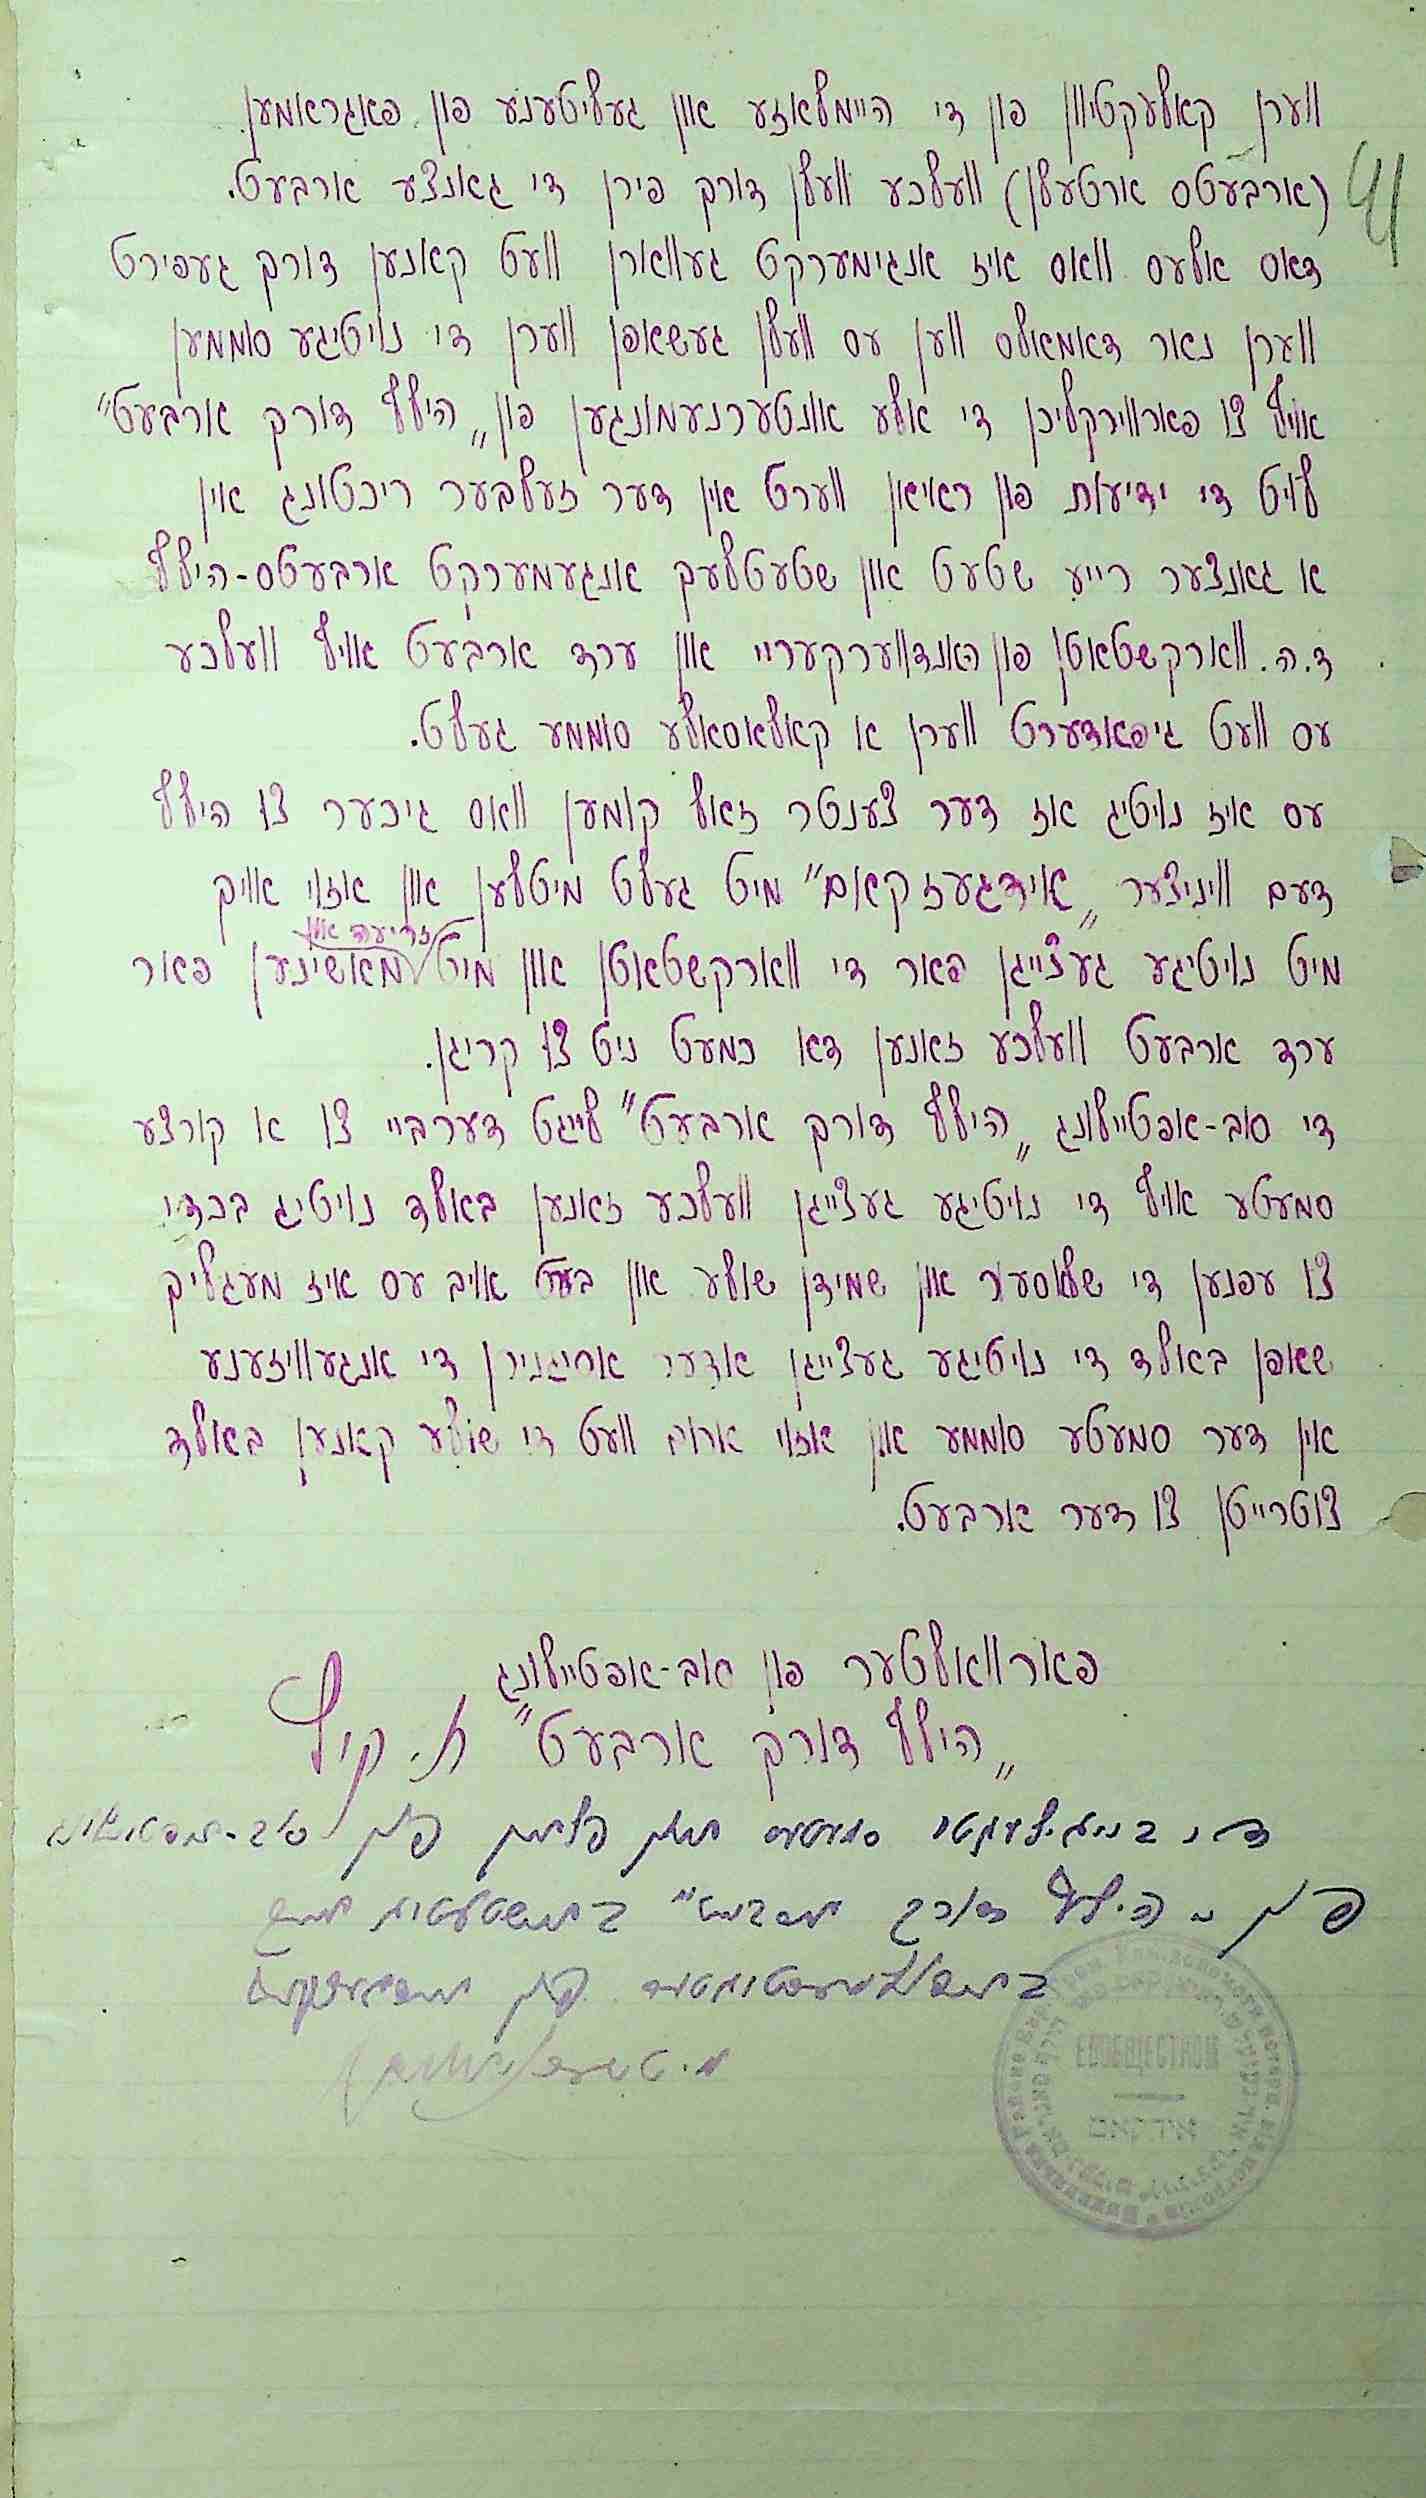 ווערן קאלעקטיוון פון די היימלאזע און געליטענע פון פאגראמען
(ארבעטס ארטעלן) וועלכע וועלן דורך פירן די גאנצע ארבעט.
דאס אלעס וואס איז אנגימערקט געווארן וועט קאנען דורך געפירט
ווערן נאר דאמאלס ווען עס וועלן געשאפן ווערן די נויטיגע סוממען
אויף צו פארווירקליכן די אלע אונטערנעמונגען פון „הילף דורך ארבעט"
לויט די ידיעות פון ראיאן ווערט אין דער זעלבער ריכטונג אין
א גאנצער רייע שטעט און שטעטלעך אנגעמערקט ארבעטס-הילף
ד.ה. ווארקשטאטן פון האנדווערקעריי און ערד ארבעט אויף וועלכע
עס וועט גיפאדערט ווערן א קאלאסאלע סוממע געלט.
עס איז נויטיג אז דער צענטר זאל קומען וואס גיכער צו הילף
דעם וויניצער „אידגעזקאם" מיט געלט מיטלען און אזוי אויך
מיט נויטיגע געצייגן פאר די ווארקשטאטן און מיט זריעה און מאשינען פאר
ערד ארבעט וועלכע זאנען דא כמעט ניט צו קריגן.
די סוב-אפטיילונג „הילף דורך ארבעט" לייגט דערביי צו א קורצע
סמעטע אויף די נויטיגע געצייגן וועלכע זאנען באלד נויטיג בכדי
צו עפנען די שלאסער און שמידן שולע און בעט אויב עס איז מעגליך
שאפן באלד די נויטיגע געצייגן אדער אסיגנירן די אנגעוויזענע
אין דער סמעטע סוממע און אזוי ארום וועט די שולע קאנען באלד
צוטרייטן צו דער ארבעט.
פארוואלטער פון סוב-אפטיילונג
„הילף דורך ארבעט"
די בייגילעגטע סמעטע און פלאן פון סוב-אפטיילונג
פון „הילף דורך ארבעט"
ЕВОБЩЕСТКОМ
אידקאם
41